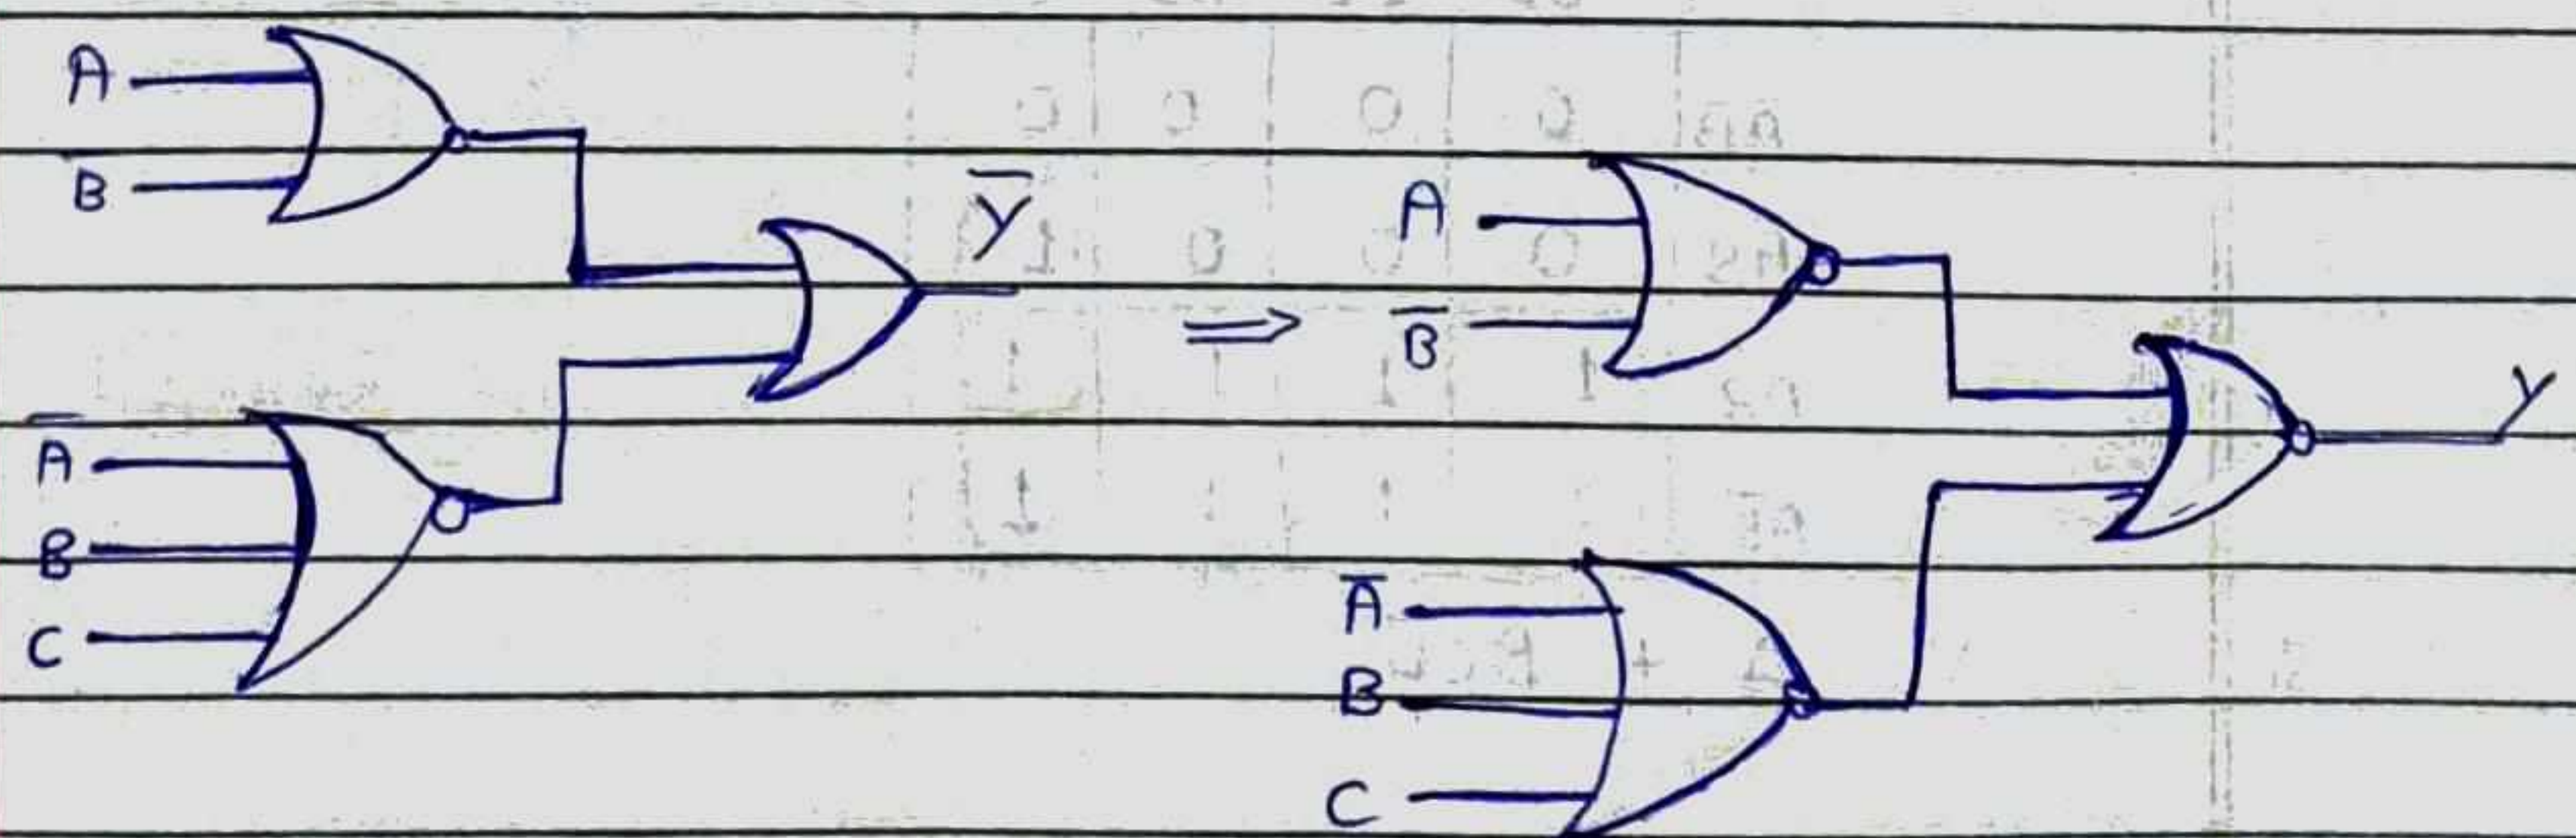 A
B̅
Y̅
A̅
B
C
⇒
A
B̅
Y
A̅
B
C